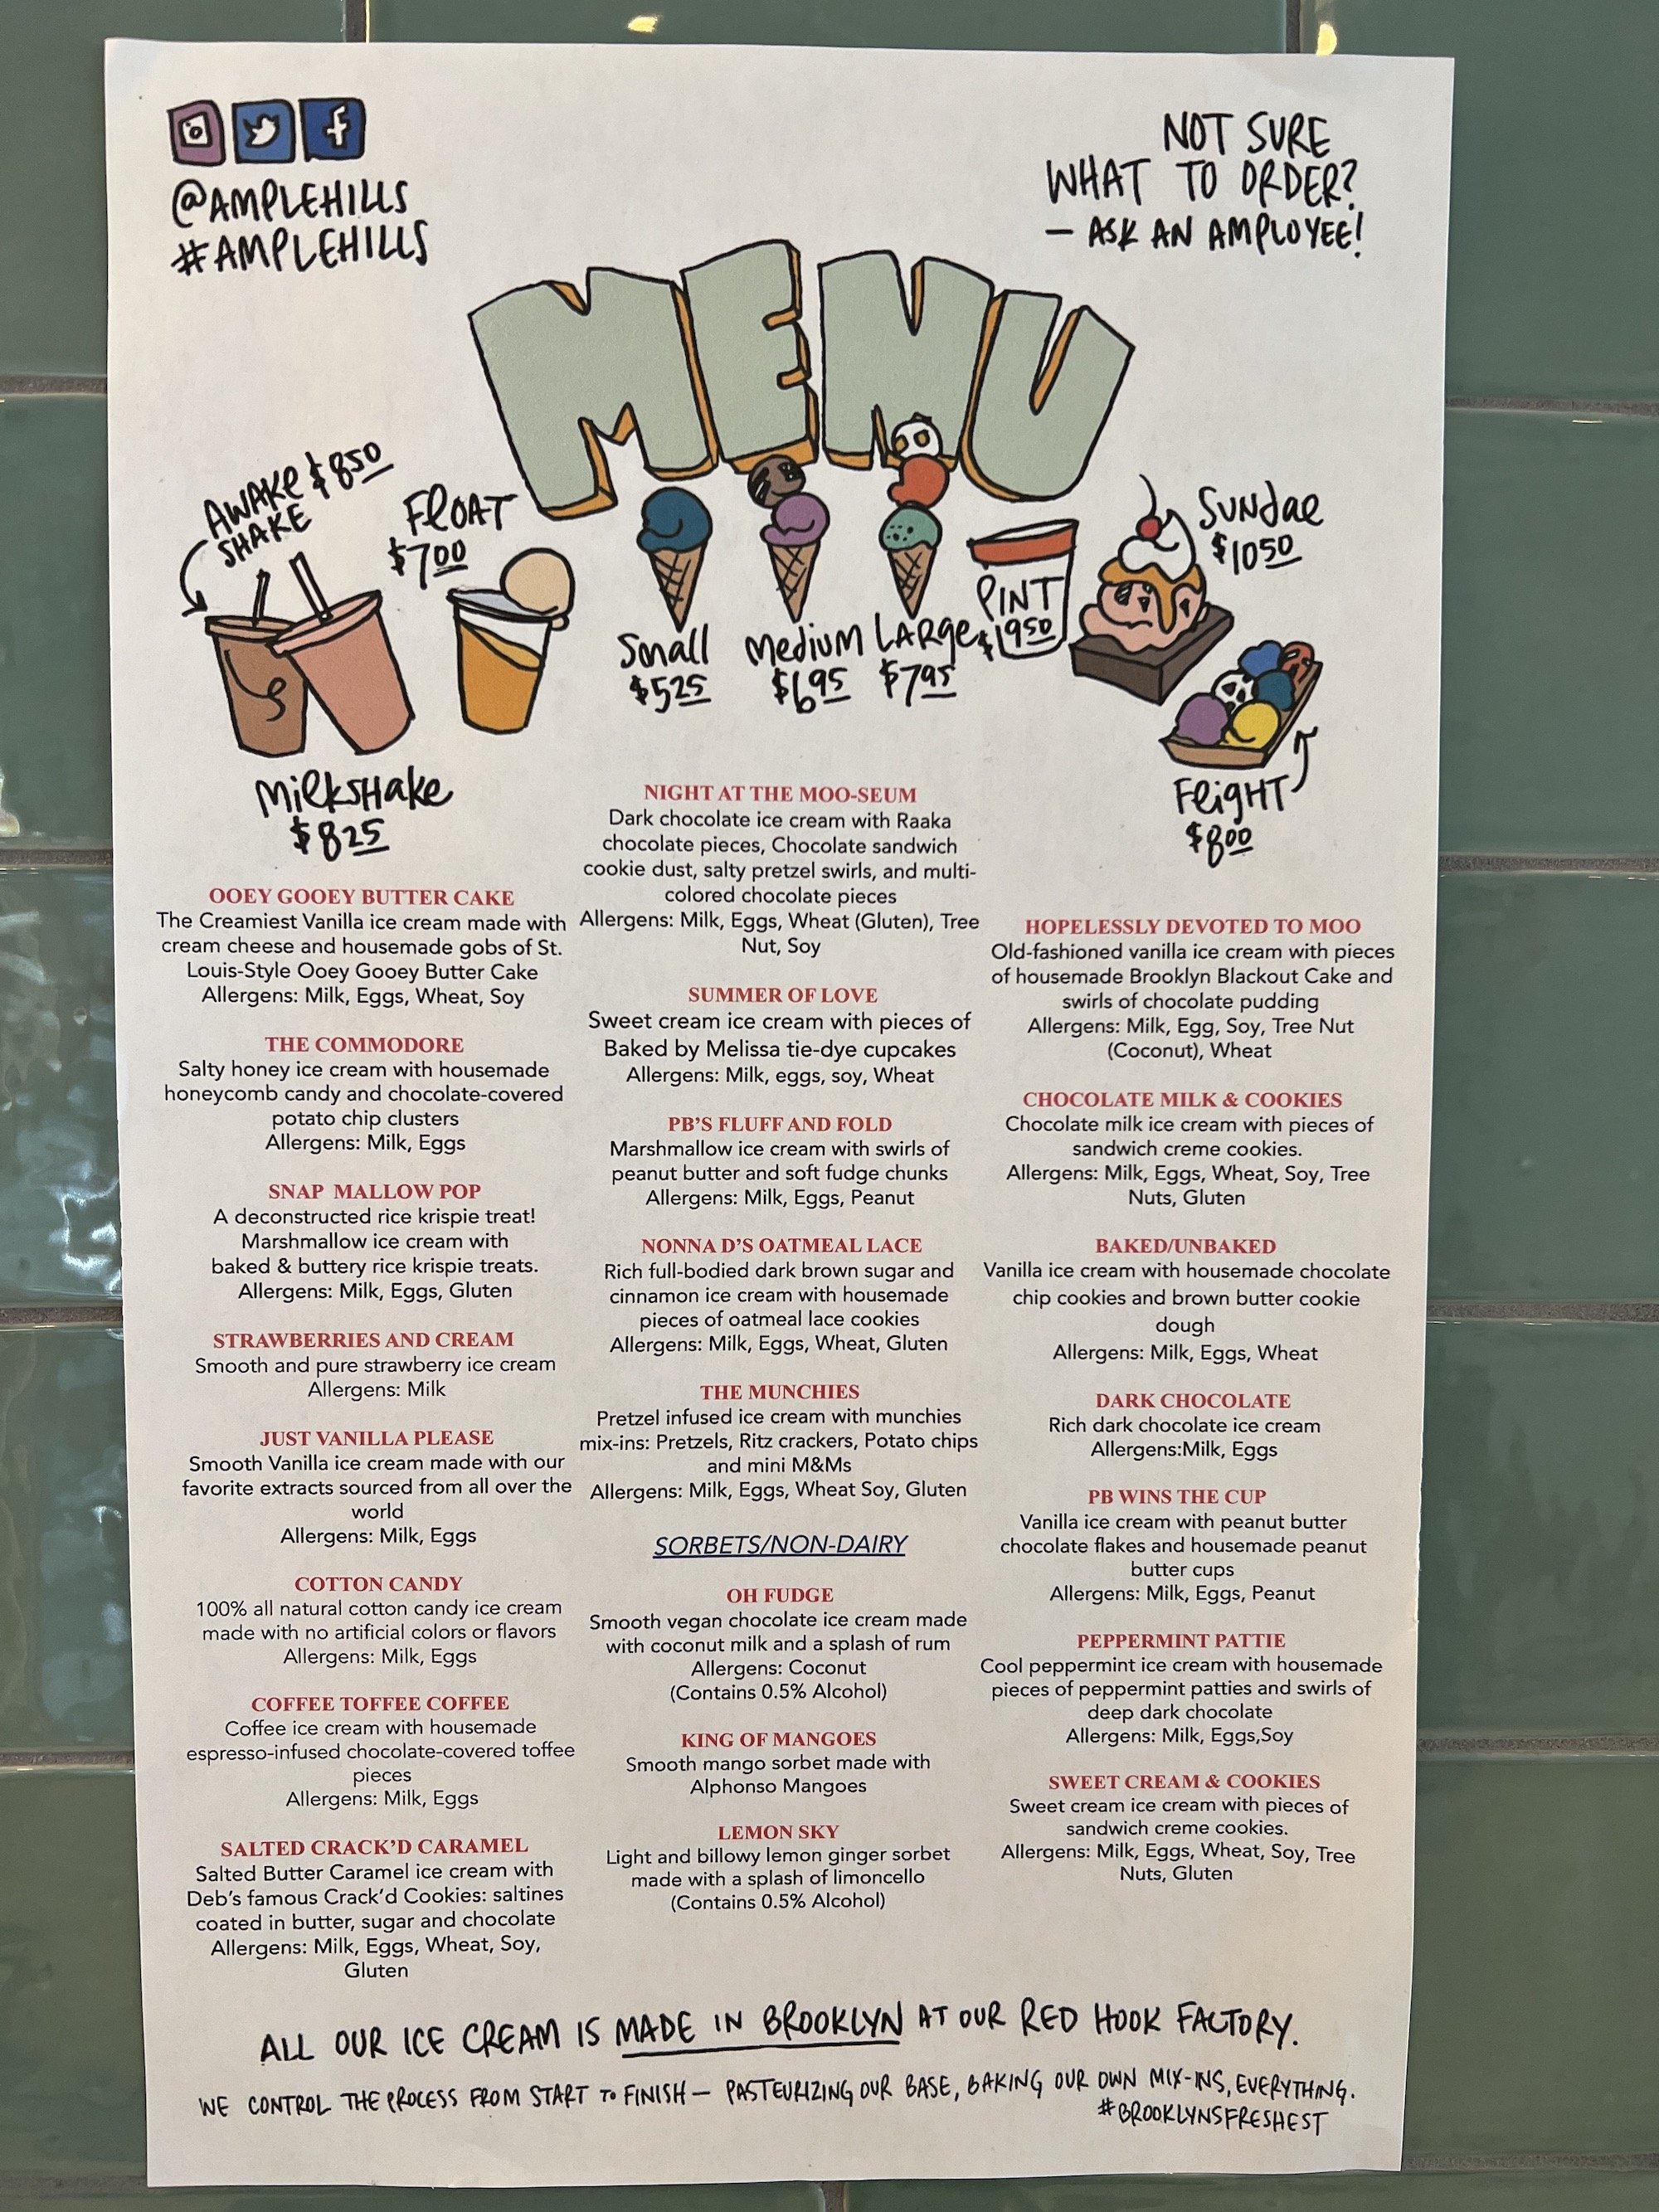 @AMPLEHILLS
#AMPLEHILLS
NOT SURE
WHAT TO ORDER?
— ASK AN AMPLOYEE!
MENU
AWAKE $8.50
SHAKE
FLOAT
$7.00
Milkshake
$8.25
Small
$5.25
Medium
$6.95
LARge
$7.95
PINT
$19.50
SUNdae
$10.50
FligHT
$8.00
OOEY GOOEY BUTTER CAKE
The Creamiest Vanilla ice cream made with
cream cheese and housemade gobs of St.
Louis-Style Ooey Gooey Butter Cake
Allergens: Milk, Eggs, Wheat, Soy
THE COMMODORE
Salty honey ice cream with housemade
honeycomb candy and chocolate-covered
potato chip clusters
Allergens: Milk, Eggs
SNAP MALLOW POP
A deconstructed rice krispie treat!
Marshmallow ice cream with
baked & buttery rice krispie treats.
Allergens: Milk, Eggs, Gluten
STRAWBERRIES AND CREAM
Smooth and pure strawberry ice cream
Allergens: Milk
JUST VANILLA PLEASE
Smooth Vanilla ice cream made with our
favorite extracts sourced from all over the
world
Allergens: Milk, Eggs
COTTON CANDY
100% all natural cotton candy ice cream
made with no artificial colors or flavors
Allergens: Milk, Eggs
COFFEE TOFFEE COFFEE
Coffee ice cream with housemade
espresso-infused chocolate-covered toffee
pieces
Allergens: Milk, Eggs
SALTED CRACK'D CARAMEL
Salted Butter Caramel ice cream with
Deb's famous Crack'd Cookies: saltines
coated in butter, sugar and chocolate
Allergens: Milk, Eggs, Wheat, Soy,
Gluten
NIGHT AT THE MOO-SEUM
Dark chocolate ice cream with Raaka
chocolate pieces, Chocolate sandwich
cookie dust, salty pretzel swirls, and multi-
colored chocolate pieces
Allergens: Milk, Eggs, Wheat (Gluten), Tree
Nut, Soy
SUMMER OF LOVE
Sweet cream ice cream with pieces of
Baked by Melissa tie-dye cupcakes
Allergens: Milk, eggs, soy, Wheat
PB'S FLUFF AND FOLD
Marshmallow ice cream with swirls of
peanut butter and soft fudge chunks
Allergens: Milk, Eggs, Peanut
NONNA D'S OATMEAL LACE
Rich full-bodied dark brown sugar and
cinnamon ice cream with housemade
pieces of oatmeal lace cookies
Allergens: Milk, Eggs, Wheat, Gluten
THE MUNCHIES
Pretzel infused ice cream with munchies
mix-ins: Pretzels, Ritz crackers, Potato chips
and mini M&Ms
Allergens: Milk, Eggs, Wheat Soy, Gluten
SORBETS/NON-DAIRY
OH FUDGE
Smooth vegan chocolate ice cream made
with coconut milk and a splash of rum
Allergens: Coconut
(Contains 0.5% Alcohol)
KING OF MANGOES
Smooth mango sorbet made with
Alphonso Mangoes
LEMON SKY
Light and billowy lemon ginger sorbet
made with a splash of limoncello
(Contains 0.5% Alcohol)
HOPELESSLY DEVOTED TO MOO
Old-fashioned vanilla ice cream with pieces
of housemade Brooklyn Blackout Cake and
swirls of chocolate pudding
Allergens: Milk, Egg, Soy, Tree Nut
(Coconut), Wheat
CHOCOLATE MILK & COOKIES
Chocolate milk ice cream with pieces of
sandwich creme cookies.
Allergens: Milk, Eggs, Wheat, Soy, Tree
Nuts, Gluten
BAKED/UNBAKED
Vanilla ice cream with housemade chocolate
chip cookies and brown butter cookie
dough
Allergens: Milk, Eggs, Wheat
DARK CHOCOLATE
Rich dark chocolate ice cream
Allergens:Milk, Eggs
PB WINS THE CUP
Vanilla ice cream with peanut butter
chocolate flakes and housemade peanut
butter cups
Allergens: Milk, Eggs, Peanut
PEPPERMINT PATTIE
Cool peppermint ice cream with housemade
pieces of peppermint patties and swirls of
deep dark chocolate
Allergens: Milk, Eggs,Soy
SWEET CREAM & COOKIES
Sweet cream ice cream with pieces of
sandwich creme cookies.
Allergens: Milk, Eggs, Wheat, Soy, Tree
Nuts, Gluten
ALL OUR ICE CREAM IS MADE IN BROOKLYN AT OUR RED HOOK FACTORY.
WE CONTROL THE PROCESS FROM START to FINISH — PASTEURIZING OUR BASE, BAKING OUR OWN MIX-INS, EVERYTHING.
#BROOKLYNSFRESHEST